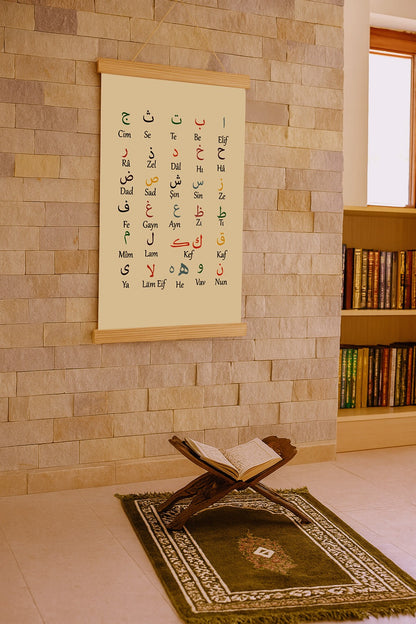 ا ب ت ث ج
Cim Se Te Be Elif
ح خ د ذ ر
Râ Zel Dâl Hı Hâ
ز س ش ص ض
Dad Sad Şın Sin Ze
ط ظ ع غ ف
Fe Gayn Ayn Zı Tı
ق ك ک ل م
Mîm Lam Kef Kaf
ن و ه لا ي
Ya Lâm Elif He Vav Nun